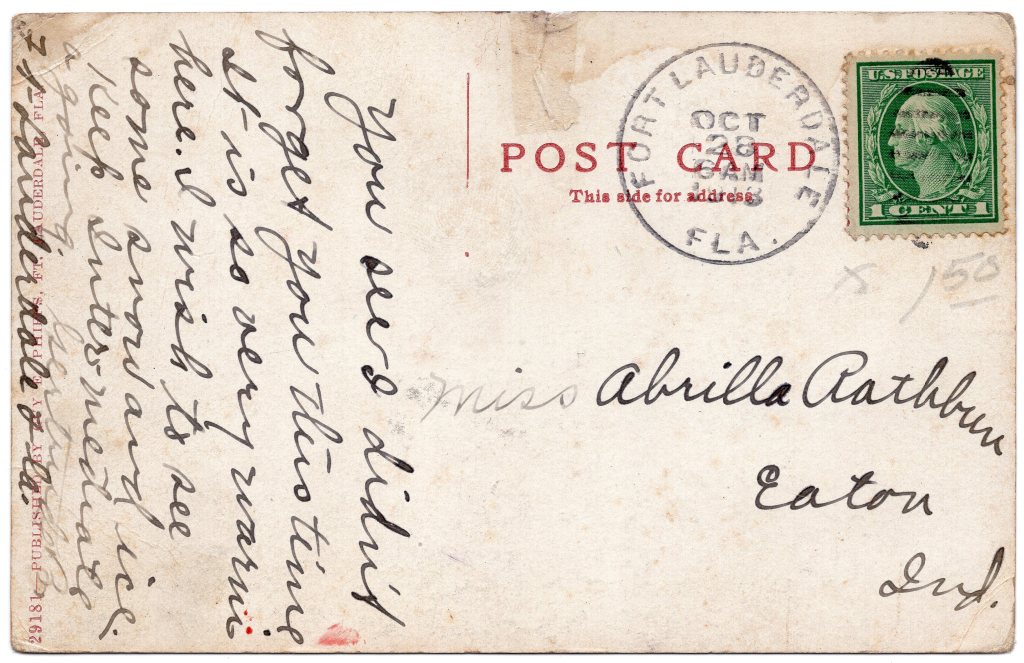 You see I didn't
forget you this time
It is so very warm
here. I wish to see
some snow and ice.
Keep Intermediate
agoing. Gertrude
Ft Lauderdale Fla.
29181—PUBLISHED BY FT. LAUDERDALE, FLA.
POST CARD
This side for address
FORT LAUDERDALE
OCT
28
AM
FLA.
U.S. POSTAGE
1 CENT 1
x 150
Miss Abrilla Rathbun
Eaton
Ind.